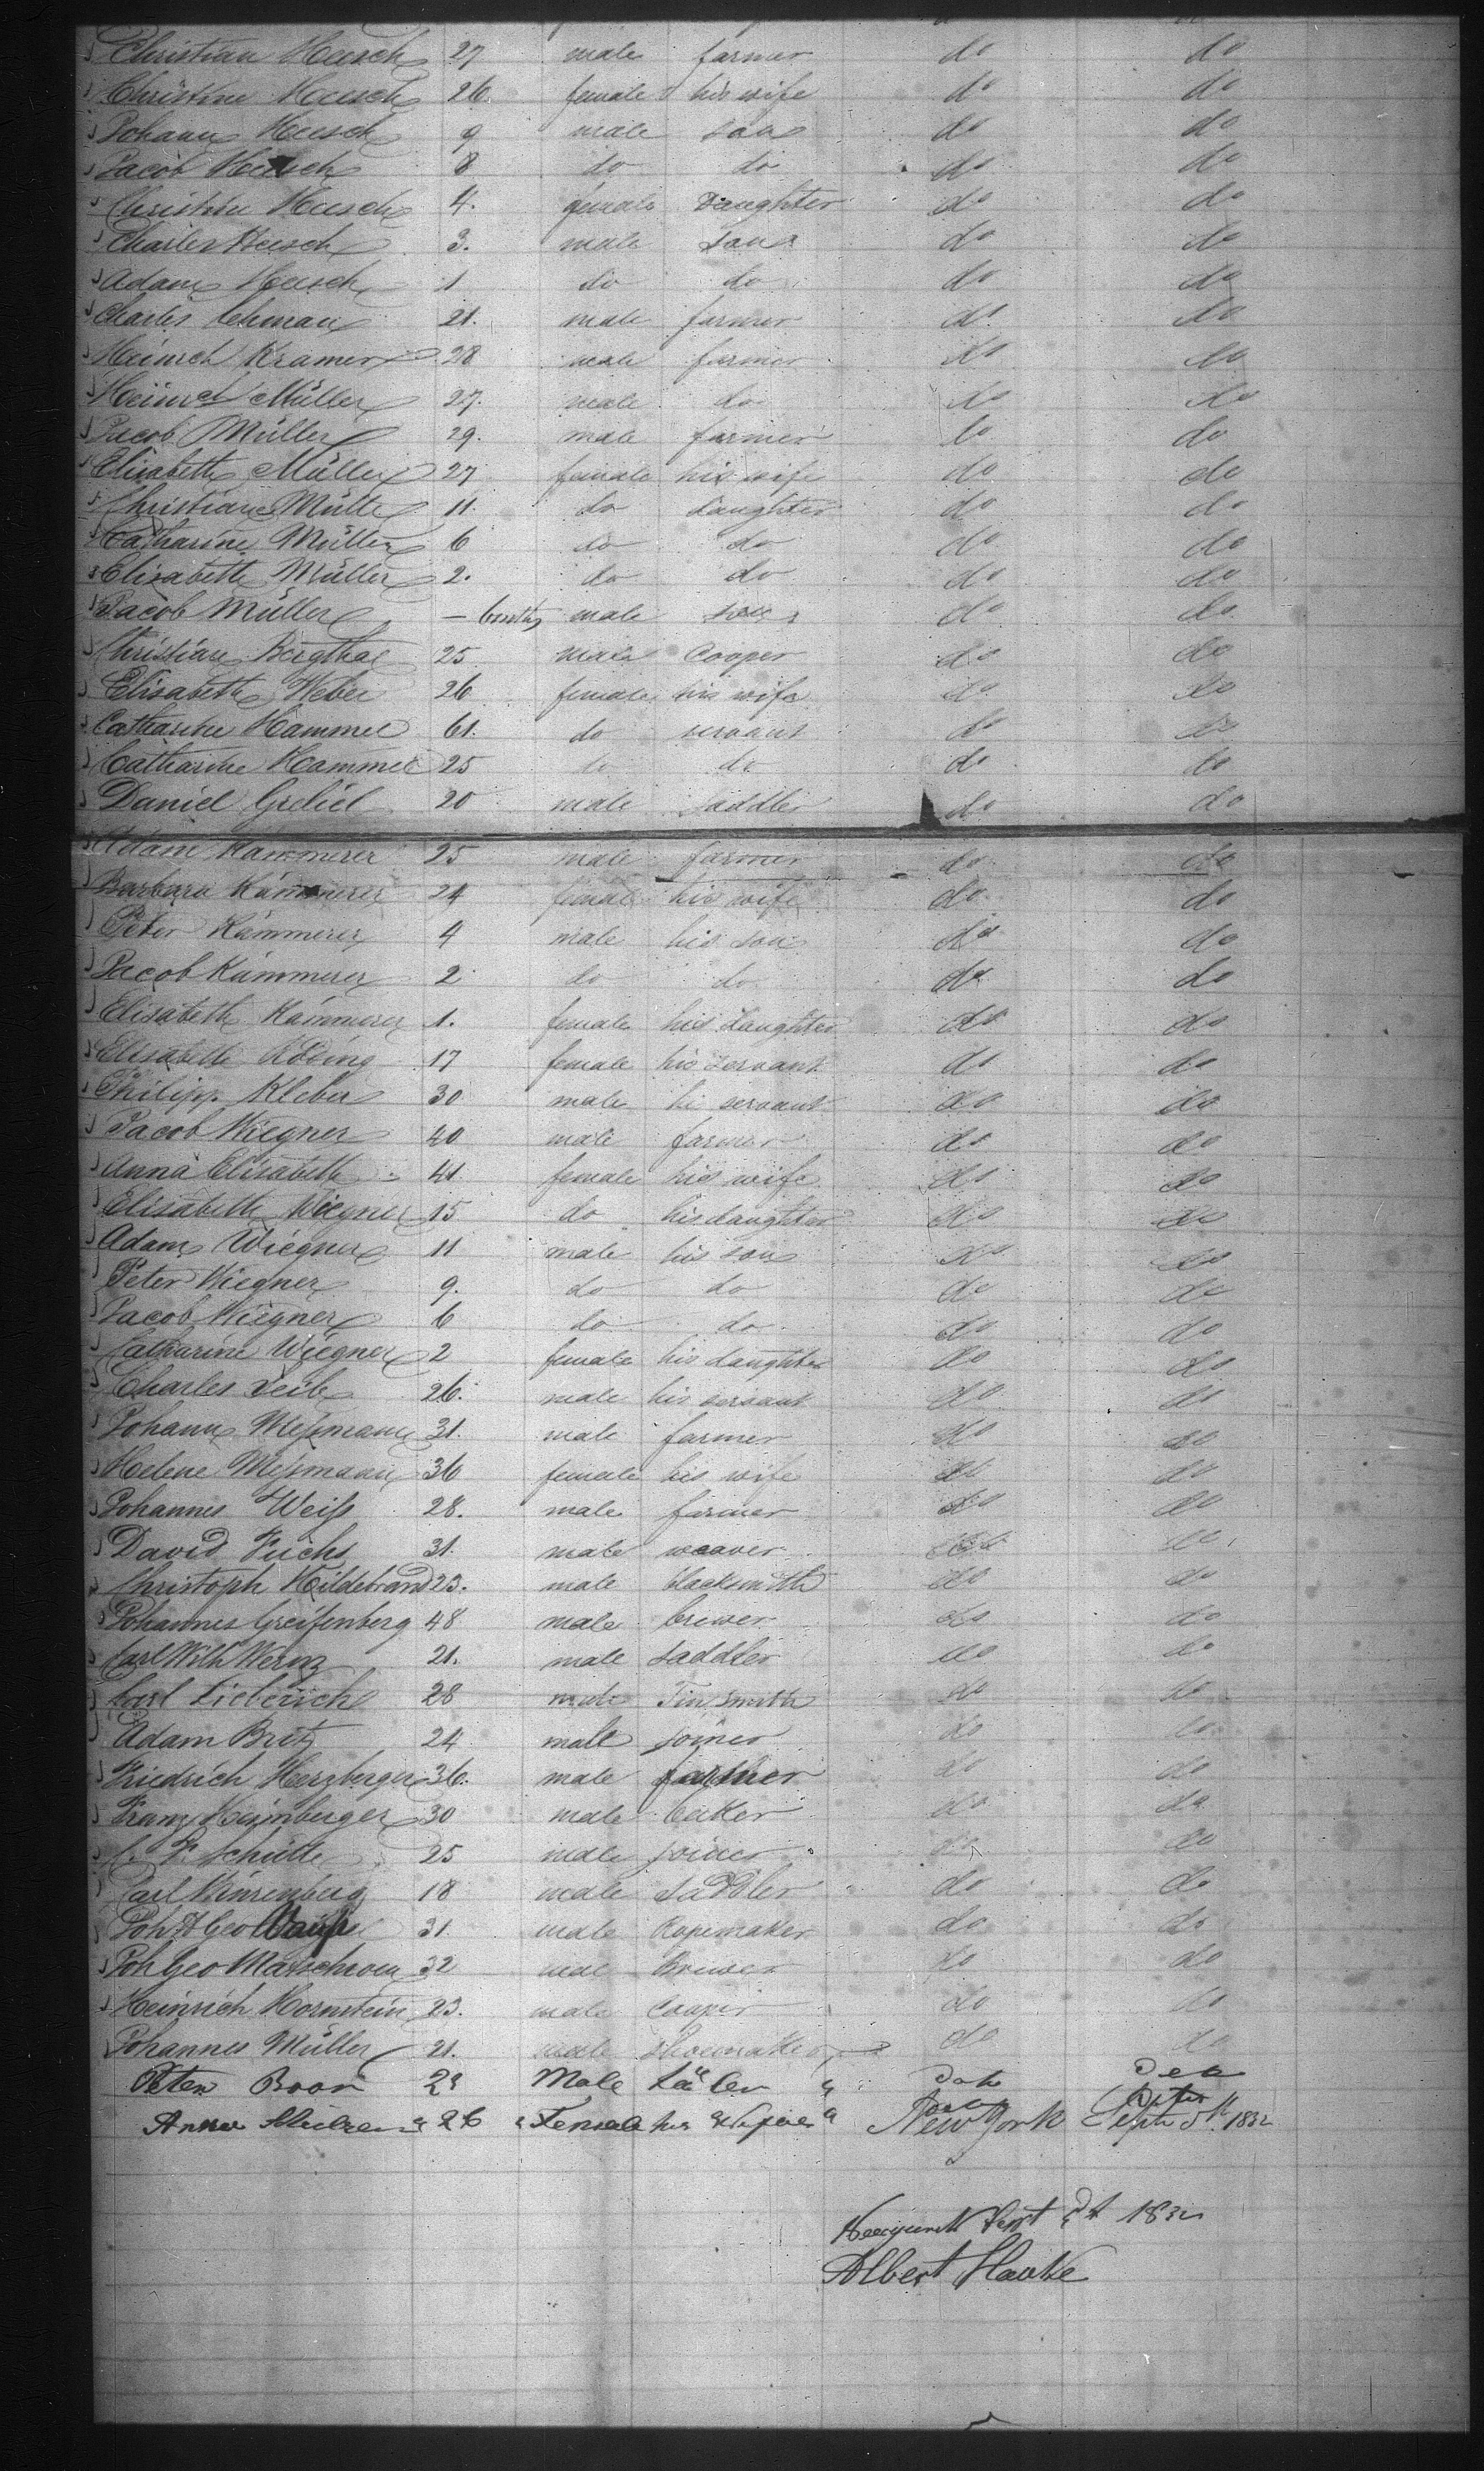 Christian Heusch 27 male farmer do do
Christine Heusch 26 female his wife do do
Johann Heusch 9 male son do do
Jacob Heusch 8 do do do do
Christine Heusch 4. female Daughter do do
Charles Heusch 3. male son do do
Adam Heusch 1 do do do do
Charles Lehman 21. male farmer do do
Heinrich Kramer 28 male farmer do do
Heinrich Müller 27. male do do do
Jacob Müller 29. male farmer do do
Elisabeth Müller 27 female his wife do do
Christiane Müller 11. do daughter do do
Catharine Müller 6 do do do do
Elisabeth Müller 2. do do do do
Jacob Müller — 6 mths male son do do
Christian Bergthal 25 male Cooper do do
Elisabeth Weber 26 female his wife do do
Catharine Hammel 61. do servant do do
Catharine Hammel 25 do do do do
Daniel 20 male saddler do do
Adam Kämmerer 25 male farmer do do
Barbara Kämmerer 24 female his wife do do
Peter Kämmerer 4 male his son do do
Jacob Kämmerer 2 do do do do
Elisabeth Kämmerer 1. female his daughter do do
Elisabeth 17 female his servant do do
Philipp Kleber 30 male hi servant do do
Jacob Wiegner 40 male farmer do do
Anna Elisabeth 41. female his wife do do
Elisabeth Wiegner 15 do his daughter do do
Adam Wiegner 11 male his son do do
Peter Wiegner 9. do do do do
Jacob Wiegner 6 do do do do
Catharine Wiegner 2 female his daughter do do
Charles Leib 26. male his servant do do
Johann Meßmann 31. male farmer do do
Helene Meßmann 36 female his wife do do
Johannes Weiß 28. male farmer do do
David Fuchs 31. male weaver do do
Christoph Hildebrand 23. male blacksmith do do
Johannes Greifenberg 48 male brewer do do
Carl Wilh Wernz 21. male saddler do do
Carl Lieberich 28 male Tin smith do do
Adam Britz 24 male joiner do do
Friedrich Herzberger 36. male farmer do do
Franz Heimberger 30 male baker do do
C. F. Schütte 25 male joiner do do
Carl 18 male saddler do do
Joh Geo 31. male Ropemaker do do
Joh Geo 32 male Brewer do do
Heinrich Hornstein 23. male Cooper do do
Johannes Müller 21. male shoemaker do do
Peter Boor 29 Male
Anna 26 Female his New York Sept 5th. 1832
Sept 1832
Albert